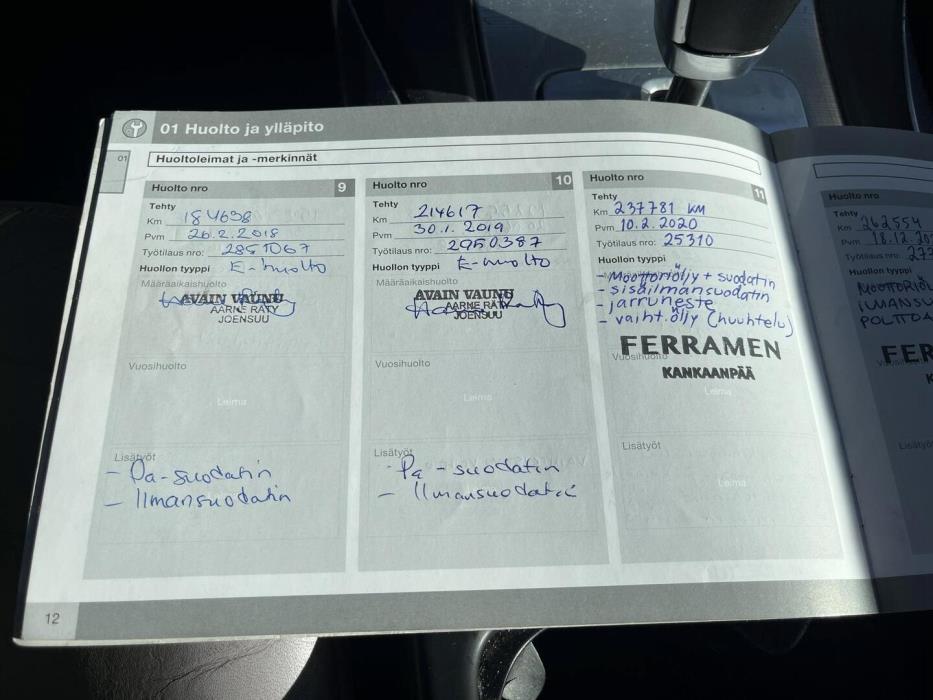 01 Huolto ja ylläpito
01
Huoltoleimat ja -merkinnät
Huolto nro 9
Tehty
Km 184698
Pvm 26.2.2018
Työtilaus nro: 2851067
Huollon tyyppi E-huolto
Määräaikaishuolto
AVAIN VAUNU
AARNE RÄTY
JOENSUU
Vuosihuolto
Leima
Lisätyöt
- Pa-suodatin
- Ilmansuodatin
Huolto nro 10
Tehty
Km 214617
Pvm 30.1.2019
Työtilaus nro: 2950387
Huollon tyyppi E-huolto
Määräaikaishuolto
AVAIN VAUNU
AARNE RÄTY
JOENSUU
Vuosihuolto
Leima
Lisätyöt
- Pa-suodatin
- Ilmansuodatin
Huolto nro 11
Tehty
Km 237781 KM
Pvm 10.2.2020
Työtilaus nro: 25310
Huollon tyyppi
- Moottoriöljy + suodatin
- sisäilmansuodatin
- jarruneste
- vaiht.öljy (huuhtelu)
FERRAMEN
Vuosihuolto
KANKAANPÄÄ
Leima
Lisätyöt
Leima
Huolto nro
Tehty
Km 262554
Pvm 18.12.20
Työtilaus nro: 277
Huollon tyyppi
MOOTTORIÖL
ILMANSU
POLTTOA
FER
K
Lisätyöt
12